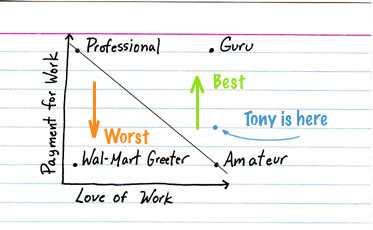 Professional
Guru
Best
Payment for Work
Tony is here
Worst
Wal-Mart Greeter
Amateur
Love of Work